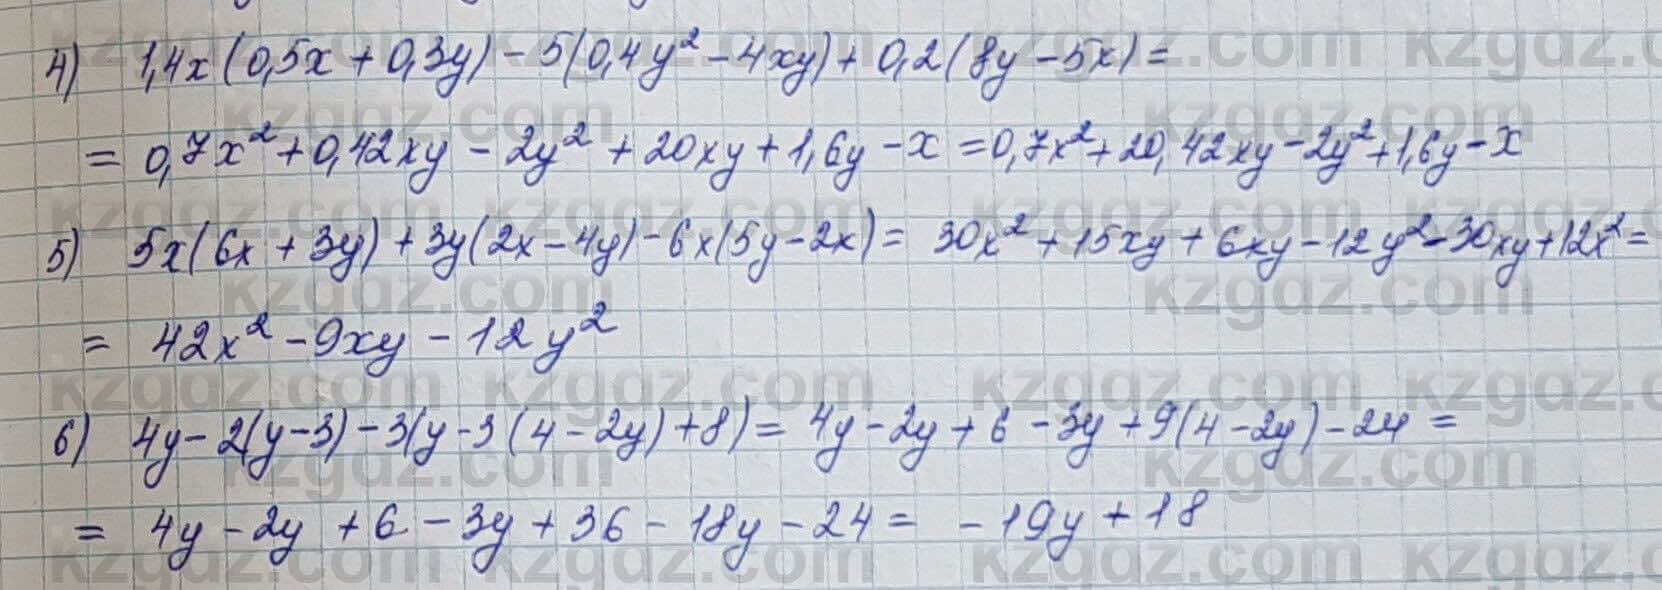 4) 1,4x(0,5x+0,3y)-5(0,4y²-4xy)+0,2(8y-5x)=
=0,7x²+0,42xy-2y²+20xy+1,6y-x=0,7x²+20,42xy-2y²+1,6y-x
5) 5x(6x+3y)+3y(2x-4y)-6x(5y-2x)= 30x²+15xy+6xy-12y²-30xy+12x²=
= 42x²-9xy-12y²
6) 4y-2(y-3)-3(y-3(4-2y)+8)= 4y-2y+6-3y+9(4-2y)-24=
= 4y-2y+6-3y+36-18y-24= -19y+18
kzgdz.com